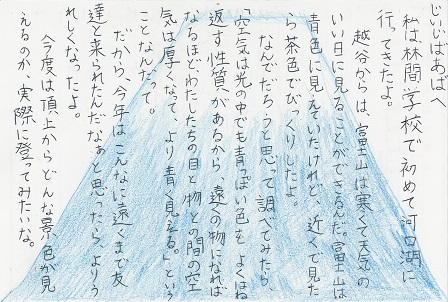 じぃじばぁばへ
　私は林間学校で初めて河口湖に
行ってきたよ。
　越谷からは、富士山は寒くて天気の
いい日に見ることができるんだ。富士山は
青色に見えていたけれど、近くで見た
ら茶色でびっくりしたよ
　なんでだろうと思って調べてみたら、
「空気は光の中でも青っぽい色を よくはね
返す性質があるから、遠くの物になれば
なるほど、わたしたちの目と物との間の空
気は厚くなって、より青く見える。」という
ことなんだって。
　だから、今年はこんなに遠くまで友
達と来られたんだなぁと思ったら、よりう
れしくなったよ。
　今度は頂上からどんな景色が見
えるのか、実際に登ってみたいな。